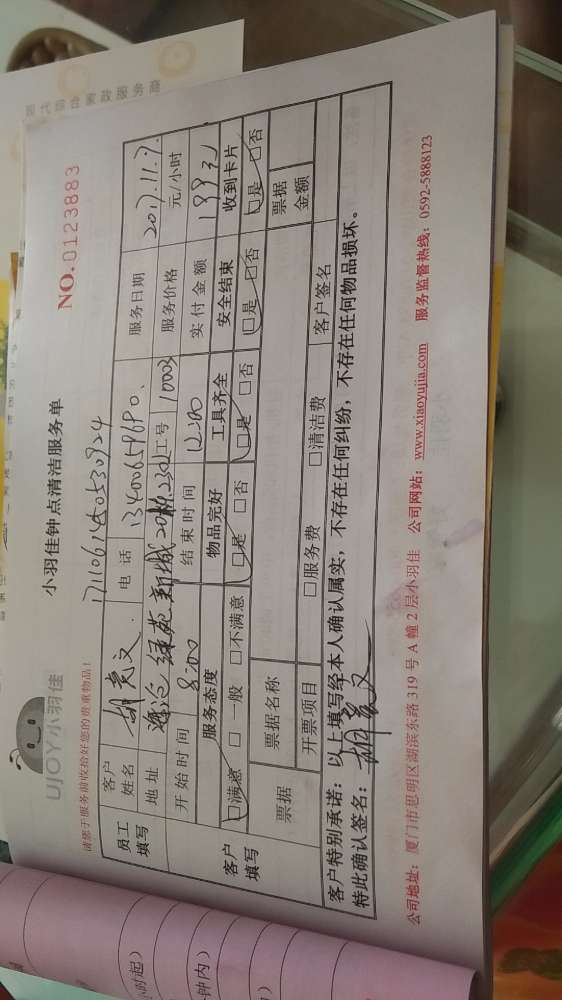 现代综合家政服务商
UJOY小羽佳
小羽佳钟点清洁服务单
NO.0123883
请您于服务前收拾好您的贵重物品!
171106140530924
员工填写
客户姓名 电话 13400659690. 服务日期 2017.11.7.
地址 新城 工号 服务价格 元/小时
开始时间 8:00 结束时间 12:00 实付金额 199元
客户填写
服务态度 物品完好 工具齐全 安全结束 收到卡片
□满意 □一般 □不满意 □是 □否 □是 □否 □是 □否 □是 □否
票据 票据名称 票据金额
开票项目 □服务费 □清洁费 客户签名
客户特别承诺:以上填写经本人确认属实,不存在任何纠纷,不存在任何物品损坏。
特此确认签名:
公司地址:厦门市思明区湖滨东路 319 号 A 幢 2 层小羽佳 公司网站:www.xiaoyujia.com 服务监督热线:0592-5888123
时起)
钟内)